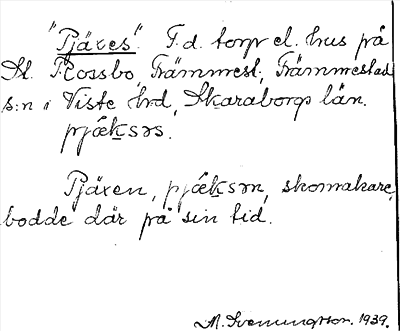 "Pjäxes". F.d. torp el. hus på
St. Flossbo, Främmest., Främmestad
s:n i Viste hrd, Skaraborgs län.
pjǽksəs.
Pjäxen, pjǽksən, skomakare,
bodde där på sin tid.
M. Svenungsson. 1939.